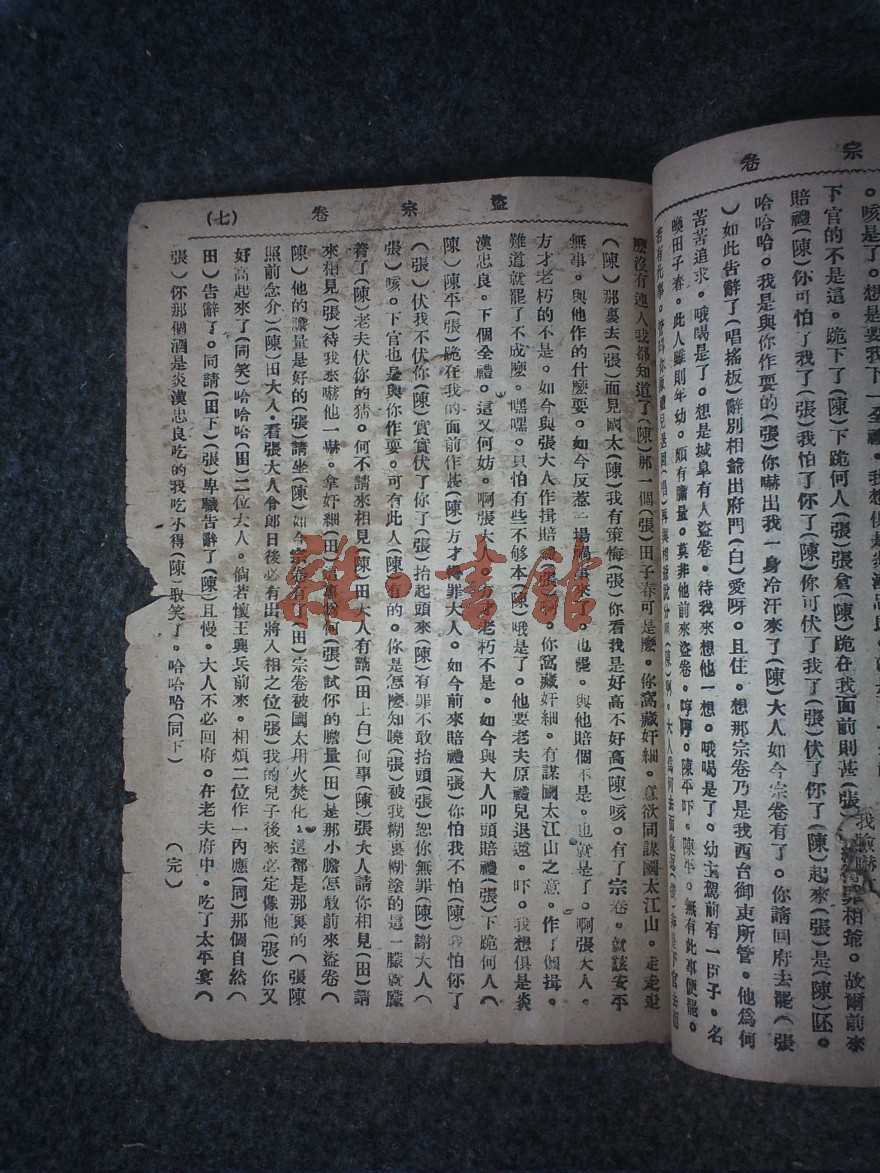 宗卷
。咳是了。想是要我下一全禮。我想俱是炎漢忠良。
下官的不是這。跪下了(陳)下跪何人(張)張倉(陳)跪在我面前則甚(張)罪相爺。故爾前來
賠禮(陳)你可怕了我了(張)我怕了你了(陳)你可伏了我了(張)伏了你了(陳)起來(張)是(陳)
哈哈哈。我是與你作耍的(張)你嚇出我一身冷汗來了(陳)大人如今宗卷有了。你請回府去罷(張
)如此告辭了(唱搖板)辭別相爺出府門(白)愛呀。且住。想那宗卷乃是我西台御吏所管。他爲何
苦苦追求。哦喝是了。想是城臬有人盜卷。待我來想他一想。哦喝是了。幼主駕前有一臣子。名
喚田子春。此人雖則年幼。頗有膽量。莫非他前來盜卷。哼哼。陳平吓。陳平。無有此事便罷。
若有此事。
盜宗卷 (七)
麽沒有連人我都知道了(陳)那一個(張)田子春可是麽。你窩藏奸細。意欲同謀國太江山。走走走
(陳)那裏去(張)面見國太(陳)我有策悔(張)你看我是好高不好高(陳)咳。有了宗卷。就該安平
無事。與他作的什麽耍。如今反惹一場禍事來了。也罷。與他賠個不是。也就是了。啊張大人。
方才老朽的不是。如今與張大人作揖賠禮(張)啊。你窩藏奸細。有謀國太江山之意。作了個揖。
難道就罷了不成麽。嘿嘿。只怕有些不够本(陳)哦是了。他要老夫原禮兒退還。吓。我想俱是炎
漢忠良。下個全禮。這又何妨。啊張大人。方才老朽不是。如今與大人叩頭賠禮(張)下跪何人(
陳)陳平(張)跪在我的面前作甚(陳)方才得罪大人。如今前來賠禮(張)你怕我不怕(陳)我怕你了
(張)伏我不伏你(陳)實實伏了你了(張)抬起頭來(陳)有罪不敢抬頭(張)恕你無罪(陳)謝大人(
張)咳。下官也是與你作耍。可有此人(陳)有的。你是怎麽知曉(張)被我糊裏糊塗的這一朦就朦
着了(陳)老夫伏你的猜。何不請來相見(陳)田大人有請(田上白)何事(陳)張大人請你相見(田)請
來相見(張)待我來嚇他一嚇。拿奸細(田)這為何(張)試你的膽量(田)是那小膽怎敢前來盜卷(
陳)他的膽量是好的(張)請坐(陳)如今宗卷有了(田)宗卷被國太用火焚化。這都是那裏的(張陳
照前念介)(陳)田大人。看張大人令郎日後必有出將入相之位(張)我的兒子後來必定像他(張)你又
好高起來了(同笑)哈哈哈(田)二位大人。倘若懷王興兵前來。相煩二位作一內應(同)那個自然(
田)告辭了。同請(田下)(張)卑職告辭了(陳)且慢。大人不必回府。在老夫府中。吃了太平宴(
張)你那個酒是炎漢忠良吃的我吃不得(陳)取笑了。哈哈哈(同下)　(完)
雜·書館